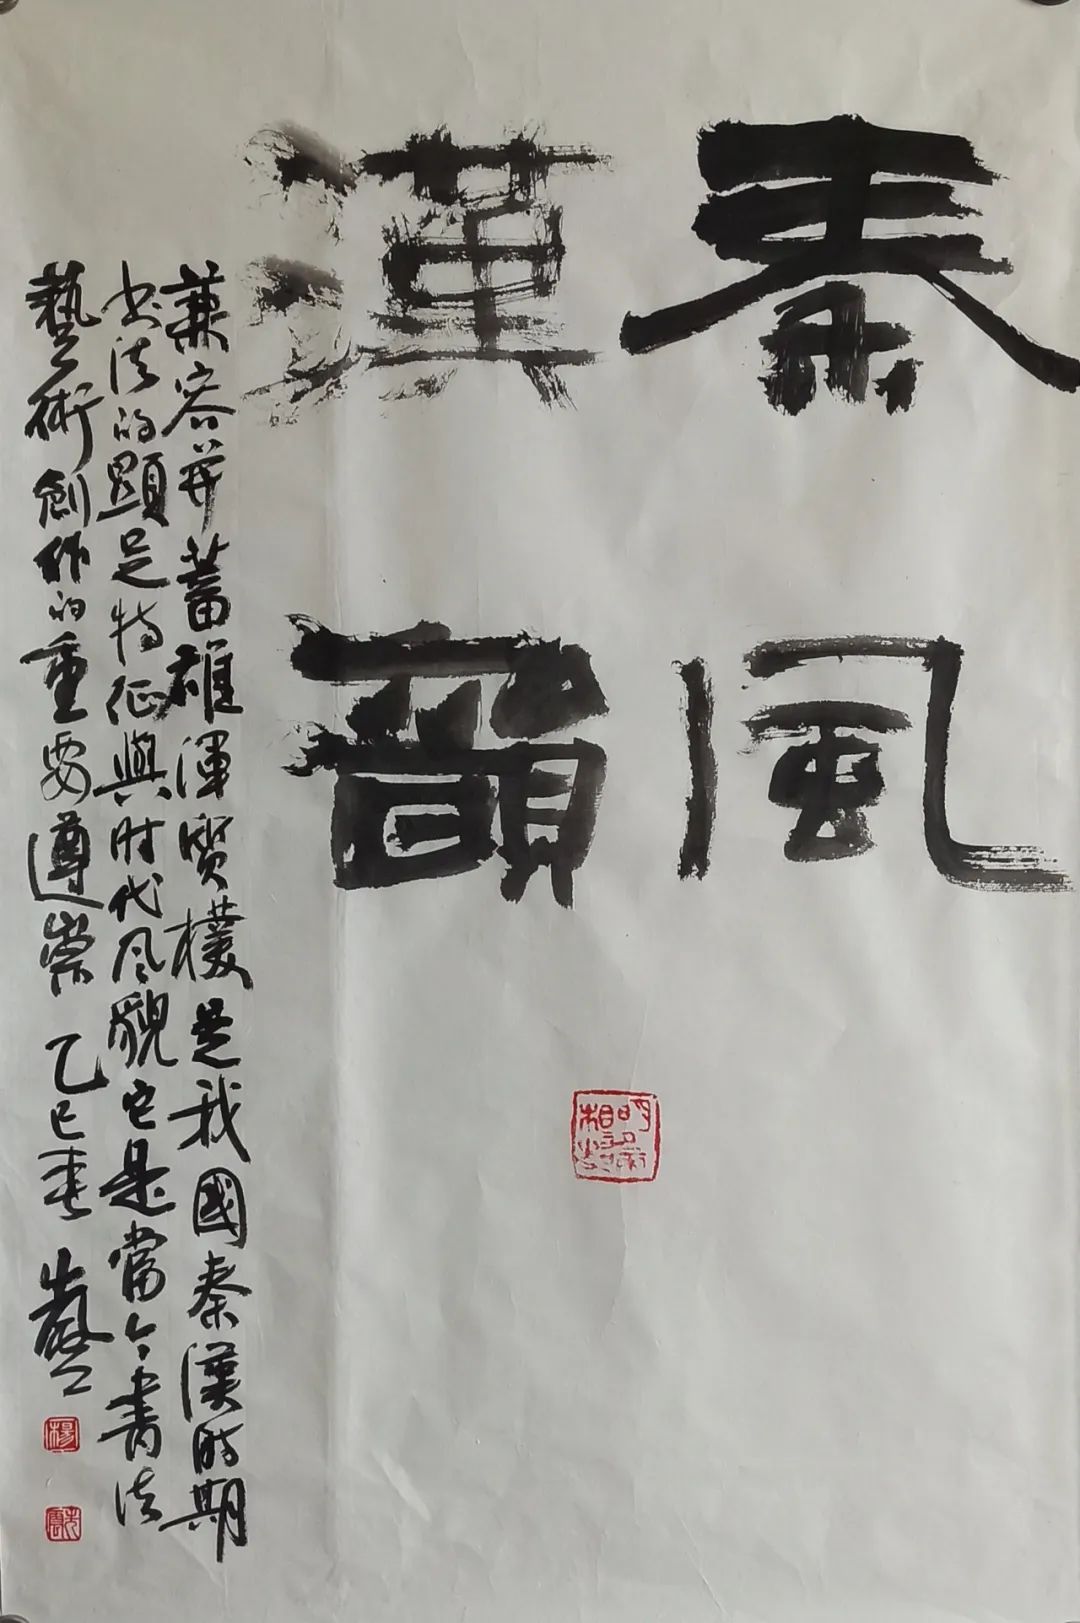 秦風
漢韻
兼容并蓄雄渾質樸是我國秦漢時期
书法的顯足特征與时代风貌它是當今書法
藝術創作的重要遵崇 乙巳春
楊